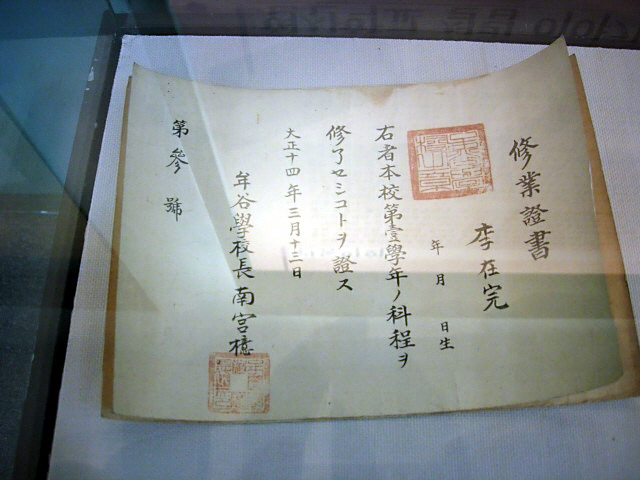 修業證書
李在完
年 月 日生
右者本校第壹學年ノ科程ヲ
修了セシコトヲ證ス
大正十四年三月十三日
牟谷學校長 南宮檍
第參號